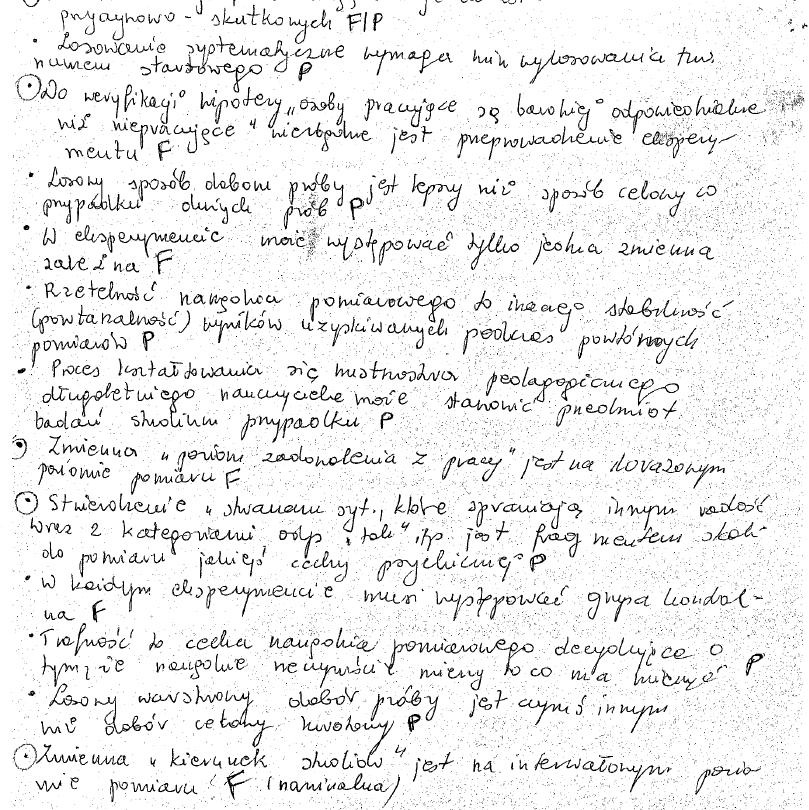 przyczynowo - skutkowych F/P
• Losowanie systematyczne wymaga min wylosowania tzw.
numeru startowego P
• Do weryfikacji hipotezy „osoby pracujące są bardziej odpowiedzialne
niż niepracujące" niezbędne jest przeprowadzenie ekspery-
mentu F
• Losowy sposób doboru próby jest lepszy niż sposób celowy w
przypadku dużych prób P
• W eksperymencie może występować tylko jedna zmienna
zależna F
• Rzetelność narzędzia pomiarowego to inaczej stabilność
(powtarzalność) wyników uzyskiwanych podczas powtórnych
pomiarów P
• Proces kształtowania się mistrzostwa pedagogicznego
długoletniego nauczyciela może stanowić przedmiot
badań studium przypadku P
• Zmienna „poziom zadowolenia z pracy" jest na ilorazowym
poziomie pomiaru F
• Stwierdzenie „stwarzam syt., które sprawiają innym radość
wraz z kategoriami odp „tak" itp. jest fragmentem skali
do pomiaru jakiejś cechy psychicznej P
• W każdym eksperymencie musi występować grupa kontrol-
na F
• Trafność to cecha narzędzia pomiarowego decydująca o
tym, że narzędzie rzeczywiście mierzy to co ma mierzyć P
• Losowy warstwowy dobór próby jest czymś innym
niż dobór celowy kwotowy P
• Zmienna „kierunek studiów" jest na interwałowym pozio
mie pomiaru F (nominalna)